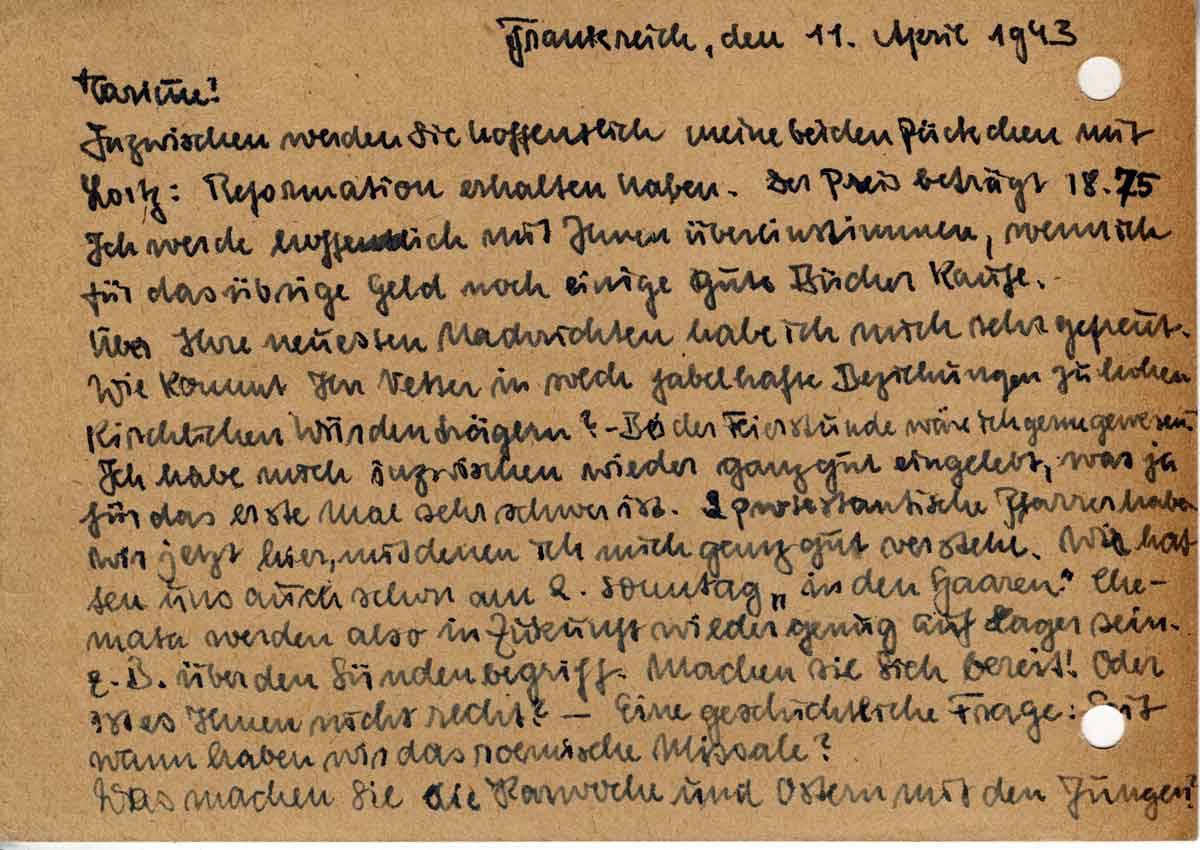 Frankreich, den 11. April 1943
Carissime!
Inzwischen werden Sie hoffentlich meine beiden Päckchen mit
Lortz: Reformation erhalten haben. Der Preis beträgt 18.75
Ich werde hoffentlich mit Ihnen übereinstimmen, wenn ich
für das übrige Geld noch einige gute Bücher Kaufe.
Über Ihre neuesten Nachrichten habe ich mich sehr gefreut.
Wie Kommt Ihr Vetter in solch fabelhafte Beziehungen zu hohen
Kirchlichen Würdenträgern? - Bei der Feierstunde wäre ich gerne gewesen.
Ich habe mich inzwischen wieder ganz gut eingelebt, was ja
für das erste Mal sehr schwer ist. 2 protestantische Pfarrer haben
wir jetzt hier, mit denen ich mich ganz gut versteh. Wir hat
ten uns auch schon am 2. Sonntag „in den Haaren." The-
mata werden also in Zukunft wieder genug auf Lager sein.
z. B. über den Sündenbegriff. Machen sie Sich bereit! Oder
ist es Ihnen nicht recht? — Eine geschichtliche Frage: Seit
wann haben wir das roemische Missale?
Was machen Sie die Karwoche und Ostern mit den Jungen?